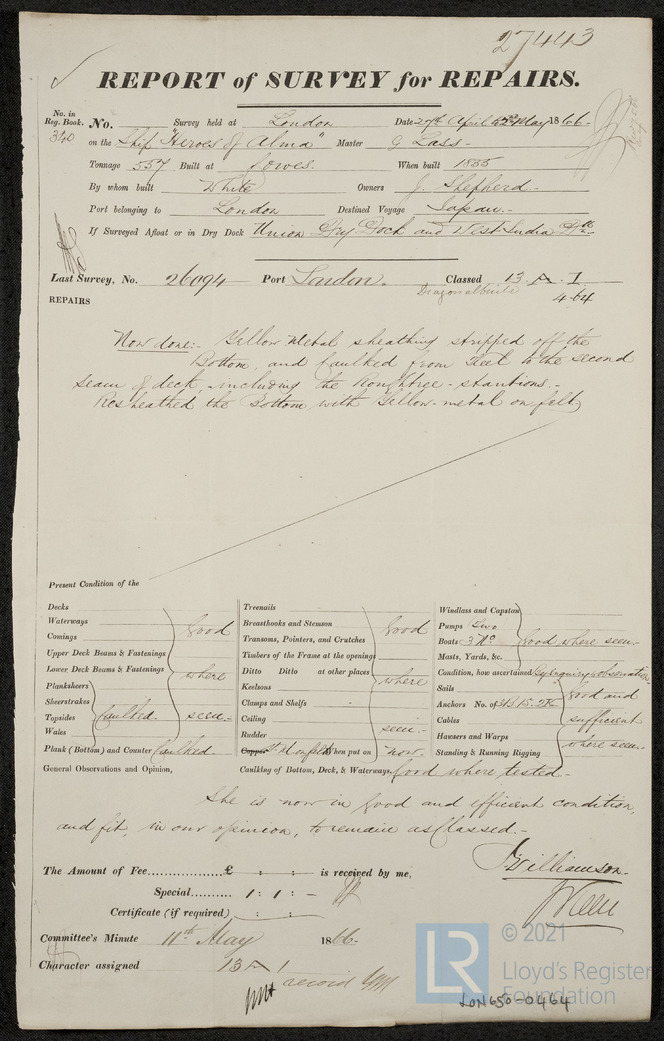 27443
REPORT of SURVEY for REPAIRS.
No. in Reg. Book. 340 No. Survey held at London Date 27th April & 2nd May 1866-
on the Ship "Heroes of Alma" Master G Lass-
Tonnage 557 Built at Cowes. When built 1855
By whom built White Owners J. Shepherd-
Port belonging to London Destined Voyage Japan.-
If Surveyed Afloat or in Dry Dock Union Dry Dock and West India
Last Survey, No. 26094 Port London. Classed 13 A. 1
Diagonal built 4.64
REPAIRS
Now done:- Yellow Metal sheathing stripped off the
Bottom, and Caulked from Keel to the second
seam of deck, including the Roughtree-stantions.-
Resheathed the Bottom with Yellow-metal on felt
Present Condition of the
Decks
Waterways
Comings
Upper Deck Beams & Fastenings
Lower Deck Beams & Fastenings
good where seen.-
Planksheers
Sheerstrakes
Topsides
Wales
Caulked.
Plank (Bottom) and Counter Caulked.-
Treenails
Breasthooks and Stemson
Transoms, Pointers, and Crutches
Timbers of the Frame at the openings
Ditto Ditto at other places
Keelsons
Clamps and Shelfs
Ceiling
Rudder
good where seen.-
Copper Y M on felt When put on now.
Windlass and Capstan
Pumps Two
Boats 3 No
Masts, Yards, &c.
good where seen.-
Condition, how ascertained By enquiry & observation
Sails
Anchors No. of
Cables
Hawsers and Warps
Standing & Running Rigging
good and sufficient where seen.-
General Observations and Opinion, Caulking of Bottom, Deck, & Waterways, good where tested-
She is now in good and efficient condition,
and fit, in our opinion, to remain as Classed.-
The Amount of Fee............... £ : : - is received by me,
Special.......... 1 : 1 : -
Certificate (if required) . : :
J Williamson-
Committee's Minute 11th May 1866-
Character assigned 13 A 1
record
© 2021
LR
Lloyd's Register
Foundation
LON650-0464